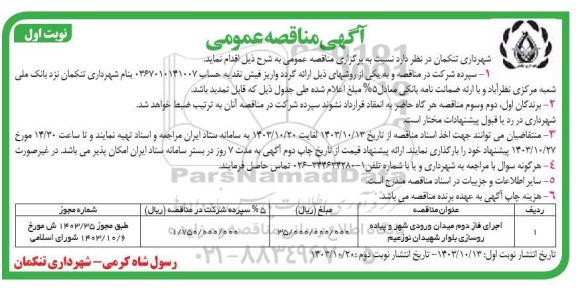 نوبت اول
آگهی مناقصه عمومی
شهرداری تنکمان در نظر دارد نسبت به برگزاری مناقصه عمومی به شرح ذیل اقدام نماید.
۱- سپرده شرکت در مناقصه و به یکی از روشهای ذیل ارائه گردد واریز فیش نقد به حساب ۰۳۶۷۰۱۰۱۴۱۰۰۷ بنام شهرداری تنکمان نزد بانک ملی
شعبه مرکزی نظرآباد و با ارئه ضمانت نامه بانکی معادل۵% مبلغ اعلام شده طی جدول ذیل که قابل تمدید باشد.
۲- برندگان اول، دوم وسوم مناقصه هر گاه حاضر به انعقاد قرارداد نشوند سپرده شرکت در مناقصه آنان به ترتیب ضبط خواهد شد.
شهرداری در رد یا قبول پیشنهادات مختار است.
۳- متقاضیان می توانند جهت اخذ اسناد مناقصه از تاریخ ۱۴۰۳/۱۰/۱۳ لغایت ۱۴۰۳/۱۰/۲۰ به سامانه ستاد ایران مراجعه و اسناد تهیه نمایند و تا ساعت ۱۴/۳۰ مورخ
۱۴۰۳/۱۰/۲۷ پیشنهاد خود را بارگذاری نمایند. ارائه پیشنهاد قیمت از تاریخ چاپ دوم آگهی به مدت ۷ روز در بستر سامانه ستاد ایران امکان پذیر می باشد. در غیرصورت
۴- هرگونه سوال با مراجعه به شهرداری و یا با شماره تلفن۱-۰۲۶-۴۴۶۳۴۲۸۰ تماس حاصل فرمایند.
۵- سایر اطلاعات و جزییات در اسناد مناقصه مندرج است.
۶- هزینه چاپ آگهی به عهده برنده مناقصه می باشد.
ردیف عنوان‌مناقصه مبلغ(ریال) ۵% سپرده شرکت در مناقصه (ریال) شماره مجوز
۱ اجرای فاز دوم میدان ورودی شهر و پیاده روسازی بلوار شهیدان نورعیم ۳۵/۰۰۰/۰۰۰/۰۰۰ ۱/۷۵۰/۰۰۰/۰۰۰ طبق مجوز ۱۴۰۳/۳۵ ش مورخ ۱۴۰۳/۱۰/۶ شورای اسلامی
تاریخ انتشار نوبت اول: ۱۴۰۳/۱۰/۱۳- تاریخ انتشار نوبت دوم :۱۴۰۳/۱۰/۲۰
رسول شاه کرمی- شهرداری تنکمان
ParsNamadData
۰۲۱-۸۸۳۴۹۶۷۰